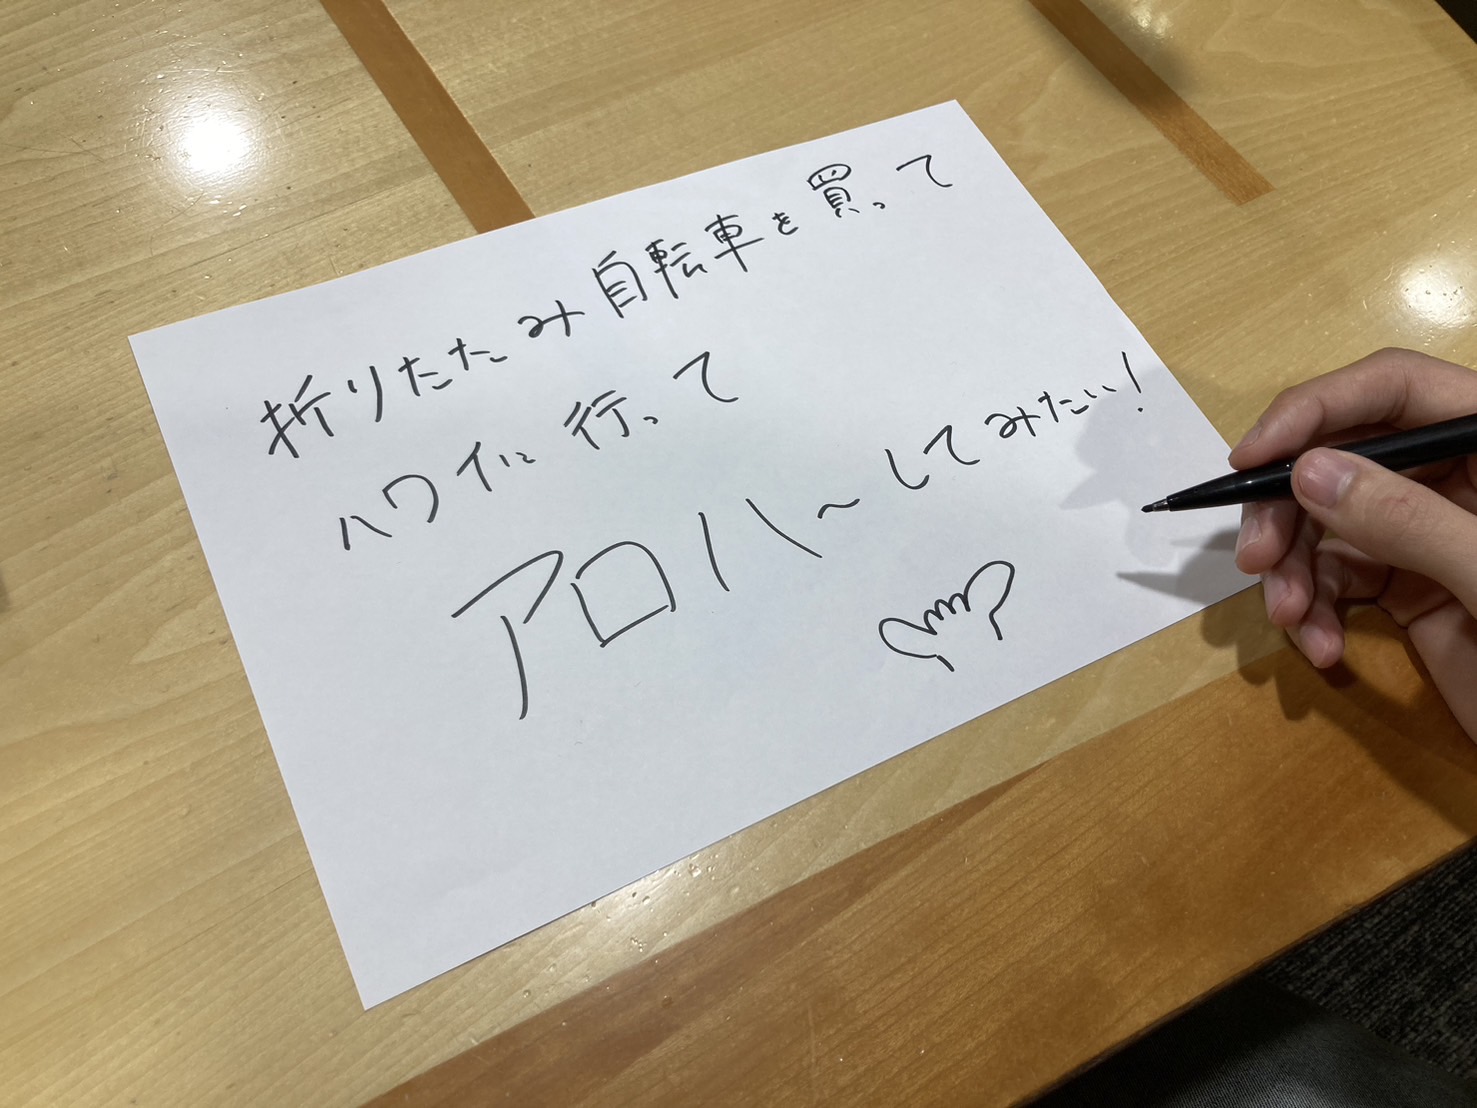 折りたたみ自転車を買って
ハワイに行って
アロハ～してみたい!